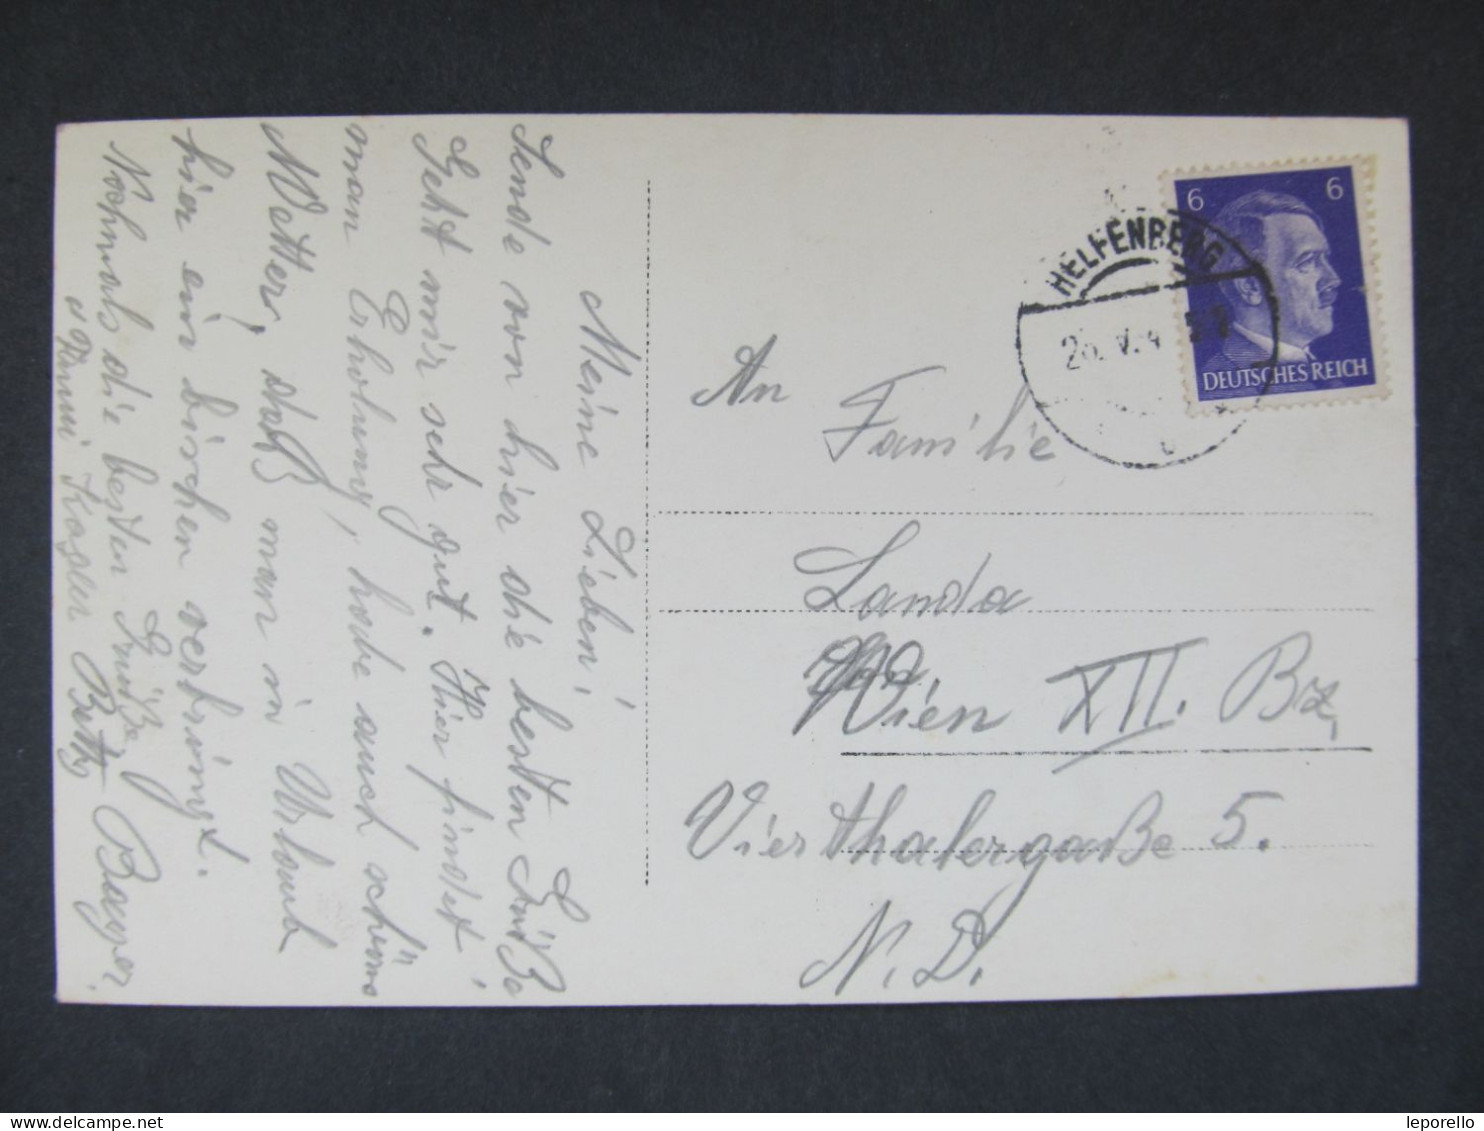 Meine Lieben!
Sende von hier die besten Grüße
Geht mir sehr gut. Hier findet
man Erholung, habe auch schöns
Wetter, daß man in Urlaub
hier ein bischen verbringt.
Nochmals die besten Grüße
Betty Bayer
u.
HELFENBERG
26. V. 4
6 6
DEUTSCHES REICH
An
Familie
Landa
Wien XII. Bz,
Vierthalergaße 5.
N. D.
leporello